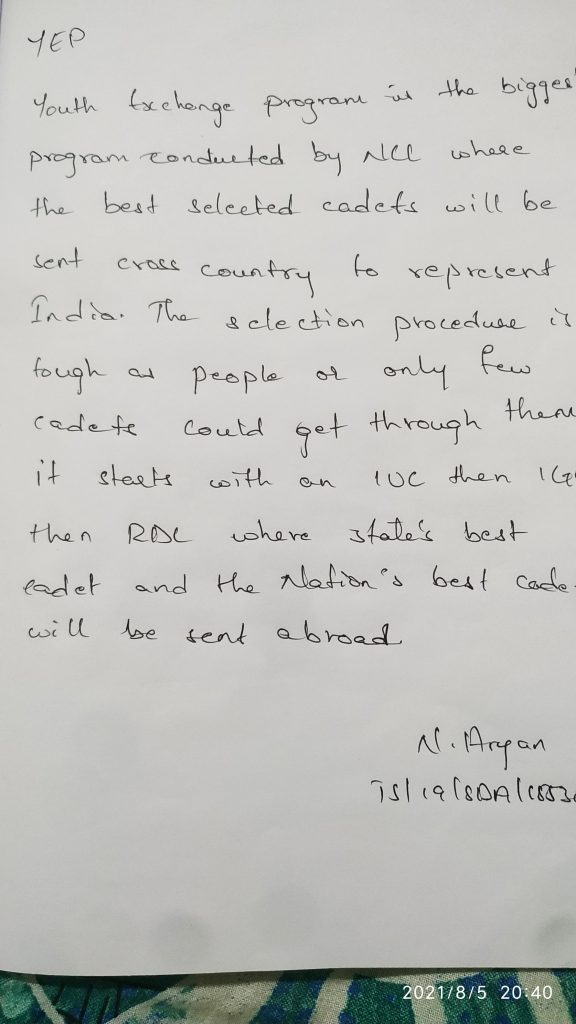 YEP
Youth Exchange program is the bigges
program conducted by NCC where
the best selected cadets will be
sent cross country to represent
India. The selection procedure is
tough as people or only few
cadets could get through them
it starts with an IUC then IG
then RDC where state's best
cadet and the Nation's best cade
will be sent abroad
N. Aryan
TS/19/SDA/
2021/8/5 20:40